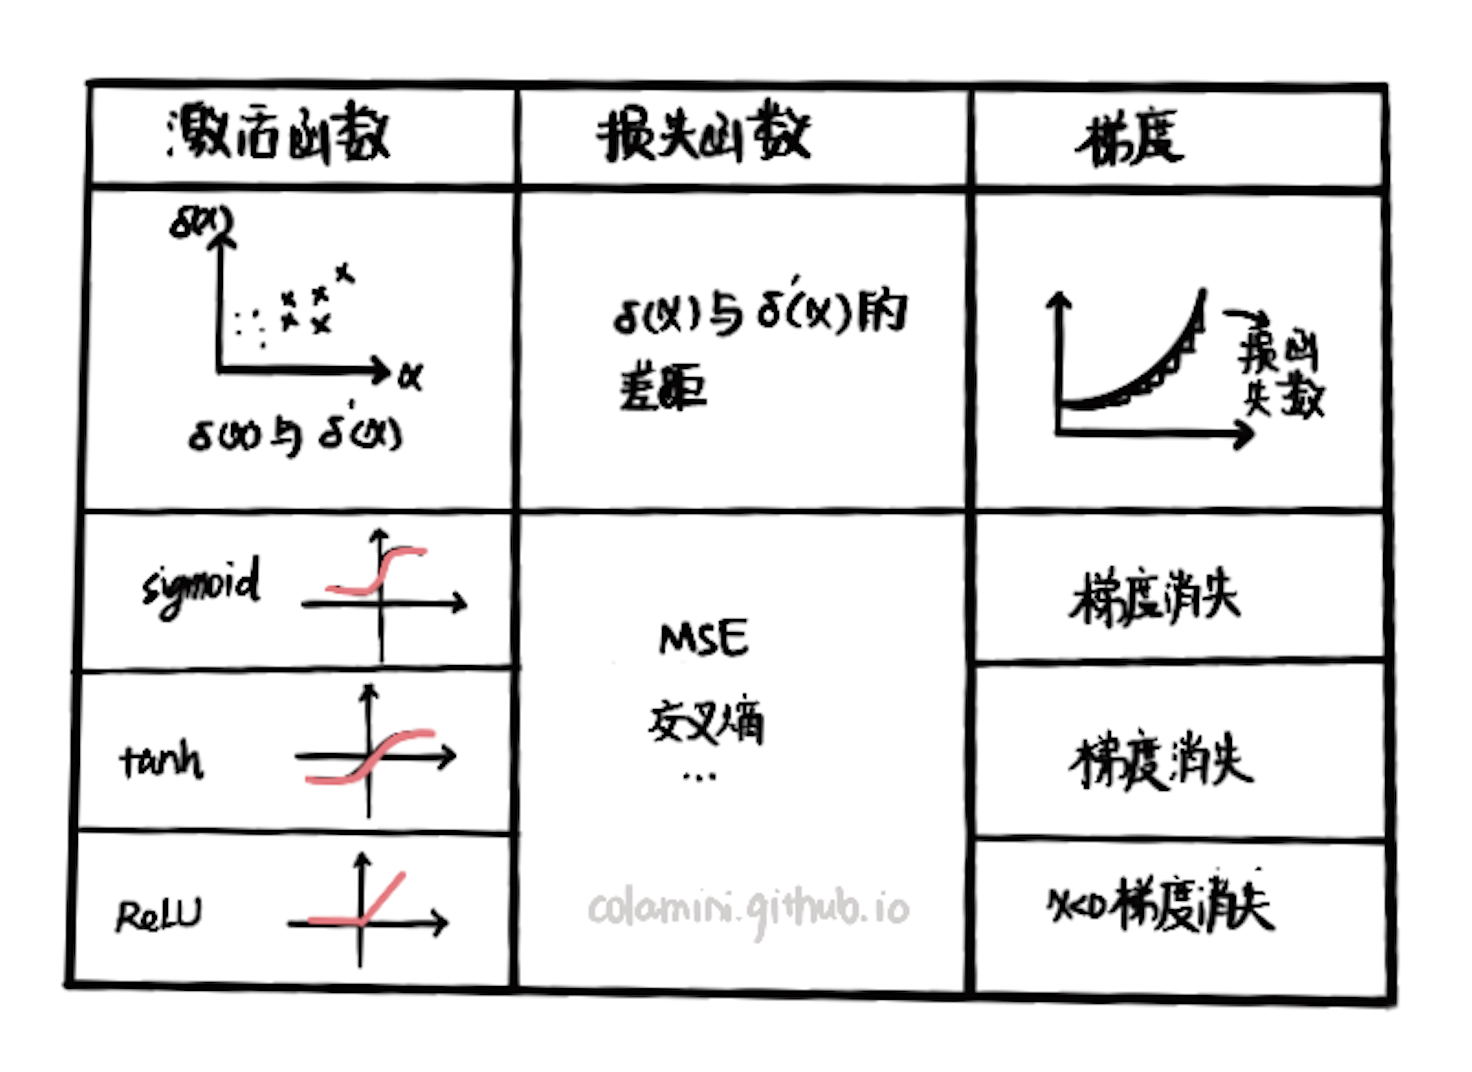 激活函数
损失函数
梯度
δ(x)
x
δ(x)与δ'(x)
δ(x)与δ'(x)的
差距
损失函数
sigmoid
MSE
交叉熵
...
梯度消失
tanh
梯度消失
ReLU
colamini.github.io
x<0梯度消失